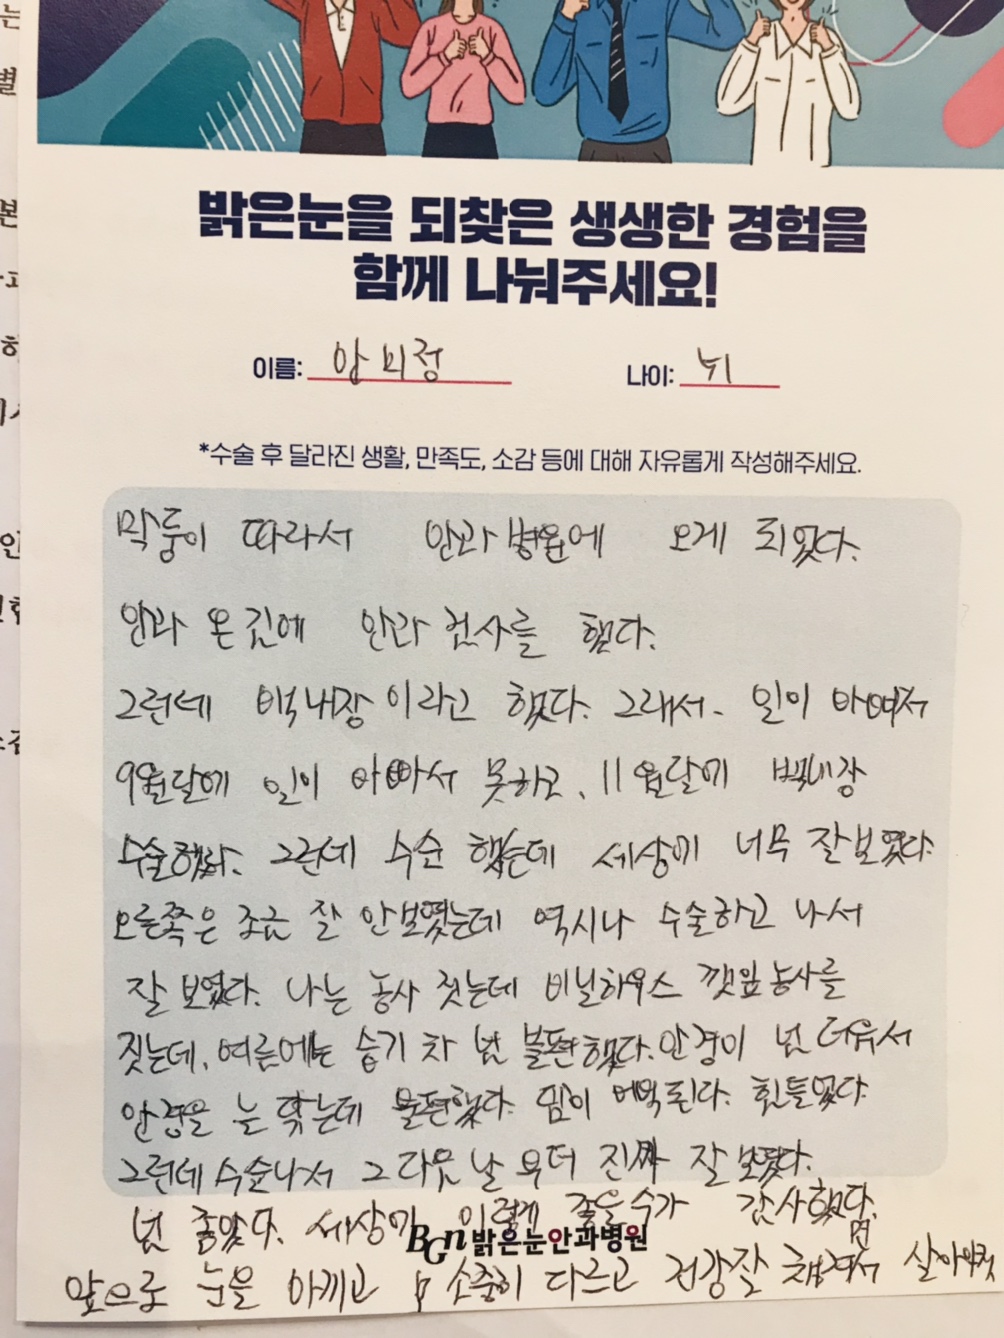 밝은눈을 되찾은 생생한 경험을
함께 나눠주세요!
이름: 양미정 나이:
*수술 후 달라진 생활, 만족도, 소감 등에 대해 자유롭게 작성해주세요.
막둥이 따라서 안과병원에 오게 되었다.
안과 온 김에 안과 검사를 했다.
그런데 백내장이라고 했다. 그래서 일이 바뻐서
9월달에 일이 바빠서 못하고, 11월달에 백내장
수술했다. 그런데 수순 했는데 세상이 너무 잘보였다.
오른쪽은 조금 잘 안보였는데 역시나 수술하고 나서
잘 보였다. 나는 농사 짓는데 비닐하우스 깻잎농사를
짓는데, 여름에는 습기 차 넘 불편했다. 안경이 넘 더워서
안경을 는 닦는데 불편했다. 땀이 된다. 힘들었다.
그런데 수순나서 그 다음날 부터 진짜 잘 보였다.
넘 좋았다. 세상이 이렇게 좋은수가 감사했다.
BGn밝은눈안과병원
앞으로 눈을 아끼고 소중히 다르고 건강잘